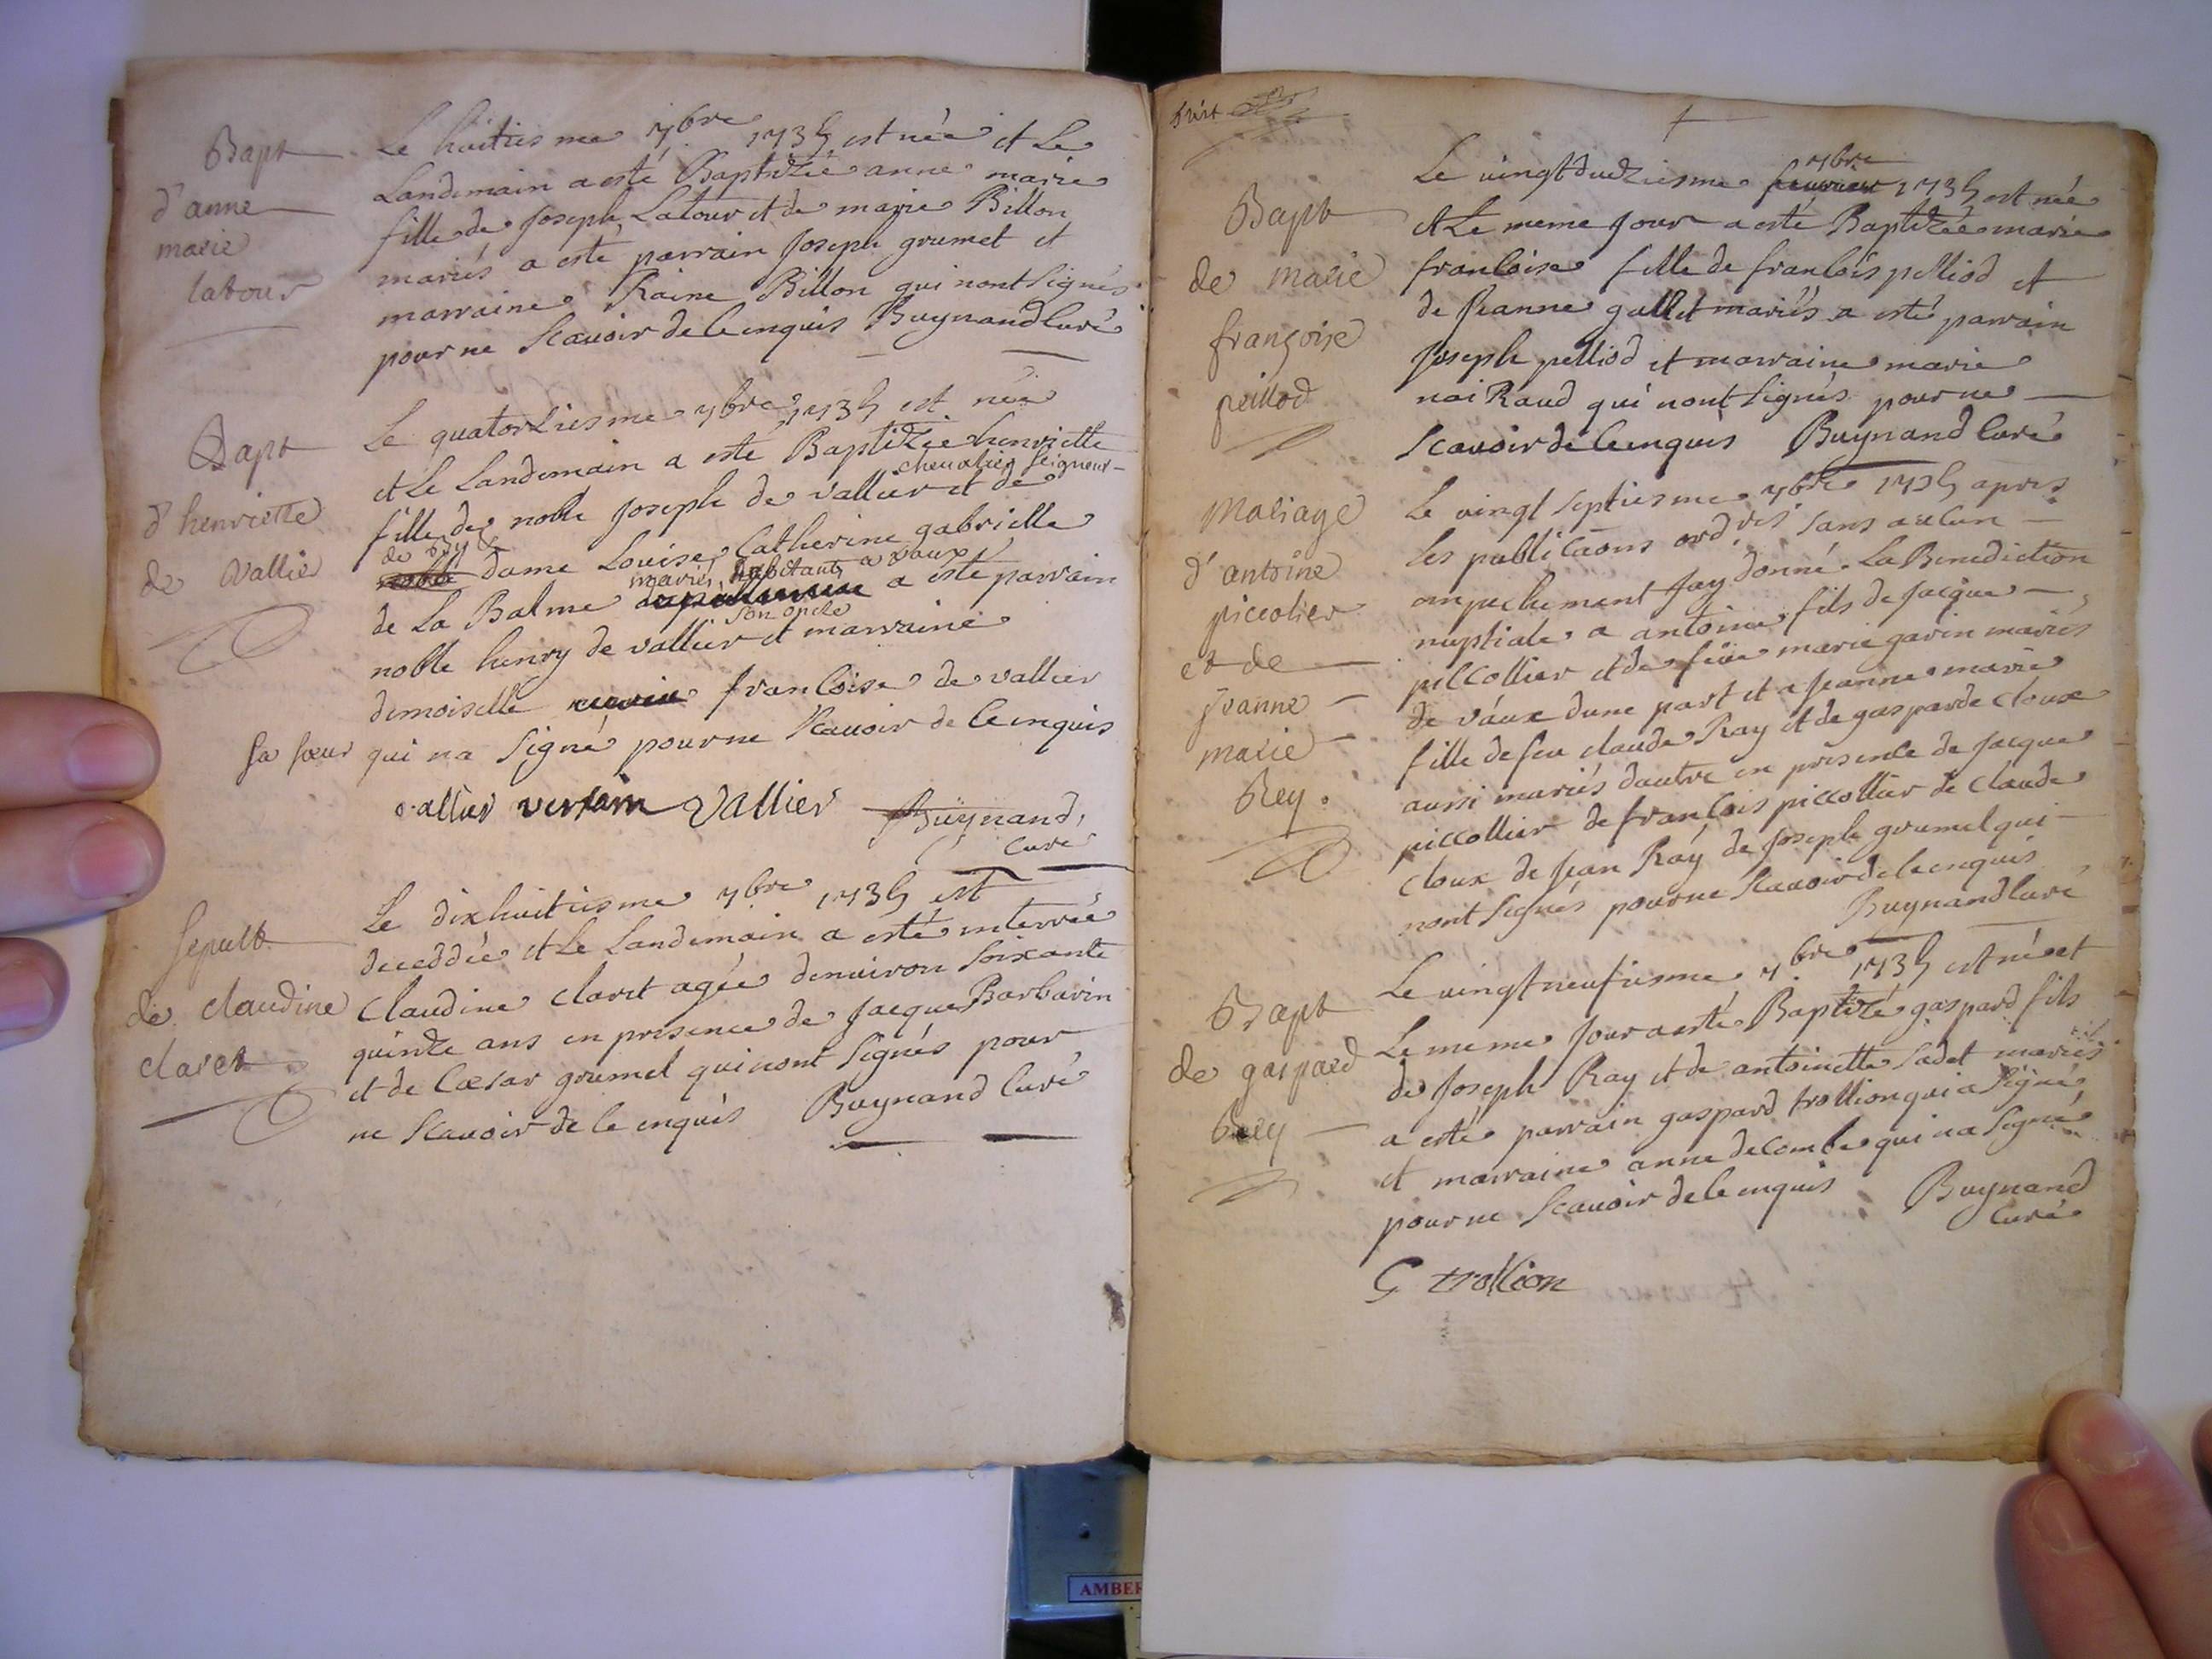 Bapt
d'anne
marie
latour
Le huitiesme 7bre 1735 est née et Le
Landemain a esté Baptizée anne marie
fille de Joseph Latour et de marie Billon
mariés a esté parrain Joseph grumet et
marraine Raine Billon qui nont Signés
pour ne Scavoir de ce enquis Buynand Curé
Bapt
d'henriette
de Vallier
Le quatorziesme 7bre 1735 est née
et Le Landemain a esté Baptizée henriette
chevalier Seigneur
fille de noble Joseph de vallier et de
de
dame Louise Catherine gabrielle
mariés habitants a vaux
de La Balme a esté parrain
son oncle
noble henry de vallier et marraine
demoiselle francoise de vallier
sa sœur qui na Signé pour ne Scavoir de ce enquis
vallier Vallier Buynand,
Curé
Sepult
de claudine
claret
Le dixhuitiesme 7bre 1735 est
deceddée et Le Landemain a esté interrée
Claudine claret agée denuiron Soixante
quinze ans en presence de Jacque Barbarin
et de Cæsar grumet qui nont Signés pour
ne Scavoir de ce enquis Buynand Curé
Bapt
de marie
françoise
peillod
7bre
Le vingt duedziesme fevrier 1735 est née
et Le meme Jour a esté Baptizée marie
francoise fille de francois pelliod et
de Jeanne gallet mariés a esté parrain
Joseph pelliod et marraine marie
naiRaud qui nont Signés pour ne
Scavoir de ce enquis Buynand Curé
Mariage
d'antoine
piccolier
et de
jeanne
marie
Rey.
Le vingt Septiesme 7bre 1735 apres
Les publicãons ord.res sans aucun
empechement Jay donné La Benediction
nuptiale a antoine fils de Jacque
piccollier et de feüe marie garin mariés
de vaux dune part et a Jeanne marie
fille de feu claude Ray et de gasparde cloux
aussi mariés dautre en presence de Jacque
piccollier de francois piccollier de claude
cloux de Jean Ray de Joseph grumet qui
nont Signés pour ne Scavoir de ce enquis
Buynand Curé
Bapt
de gaspard
Rey
Le vingt neufiesme 7bre 1735 est né et
Le meme Jour a esté Baptizé gaspard fils
de Joseph Ray et de antoinette Sadet mariés
a esté parrain gaspard trollion qui a Signé
et marraine anne decombe qui na Signé
pour ne Scavoir de ce enquis Buynand
Curé
G trollion
AMBER